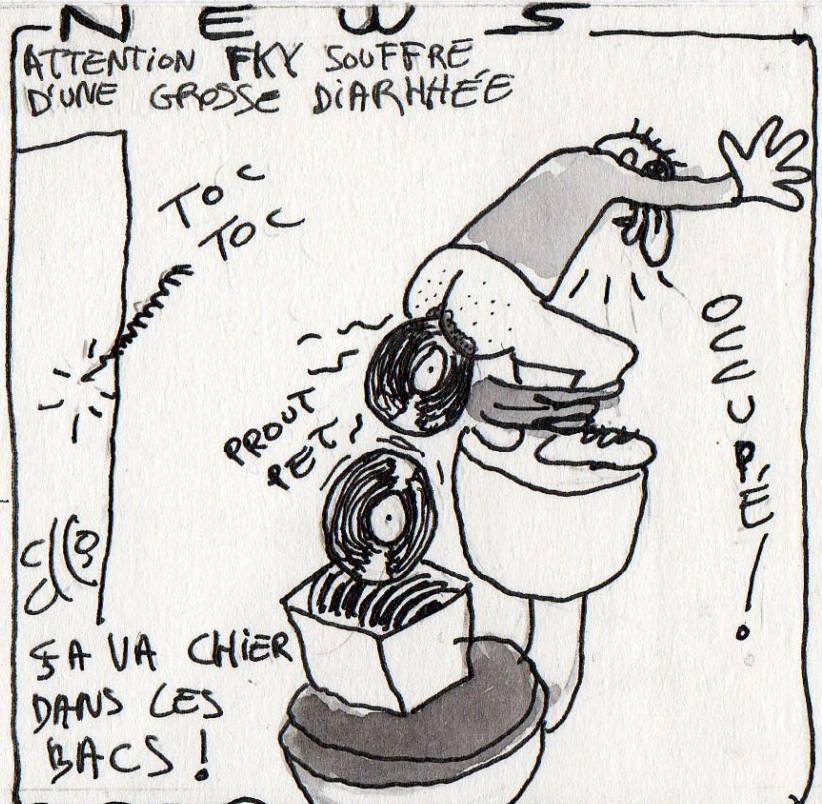 NEWS
ATTENTION FKY SOUFFRE
D'UNE GROSSE DIARHHÉE
TOC
TOC
OUUUPÉ!
PROUT
PET!
ÇA VA CHIER
DANS LES
BACS!